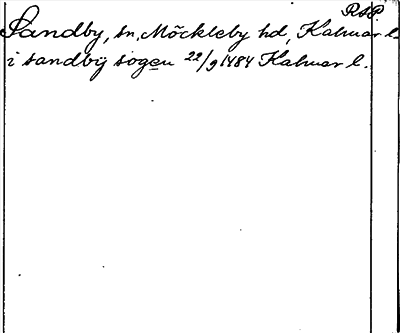 RAP.
Sandby, sn, Möckleby hd, Kalmar l.
i sandby sogen 22/9 1484 Kalmar l.